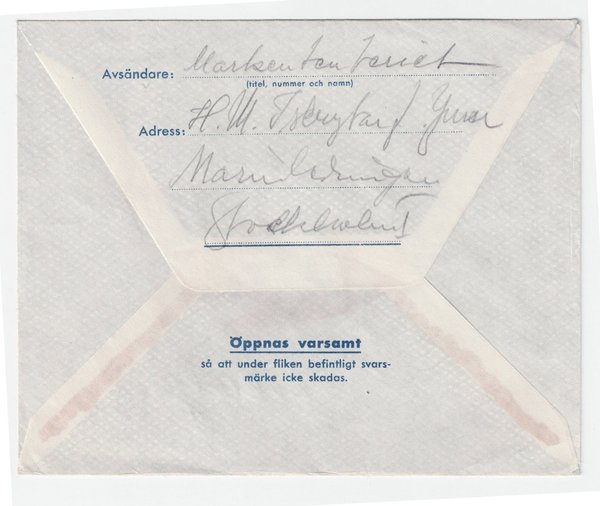 Avsändare: Marketenteriet
(titel, nummer och namn)
Adress: H. M. Isbrytar f. Ymer
Marinledningen
Stockholm 1
Öppnas varsamt
så att under fliken befintligt svars-
märke icke skadas.